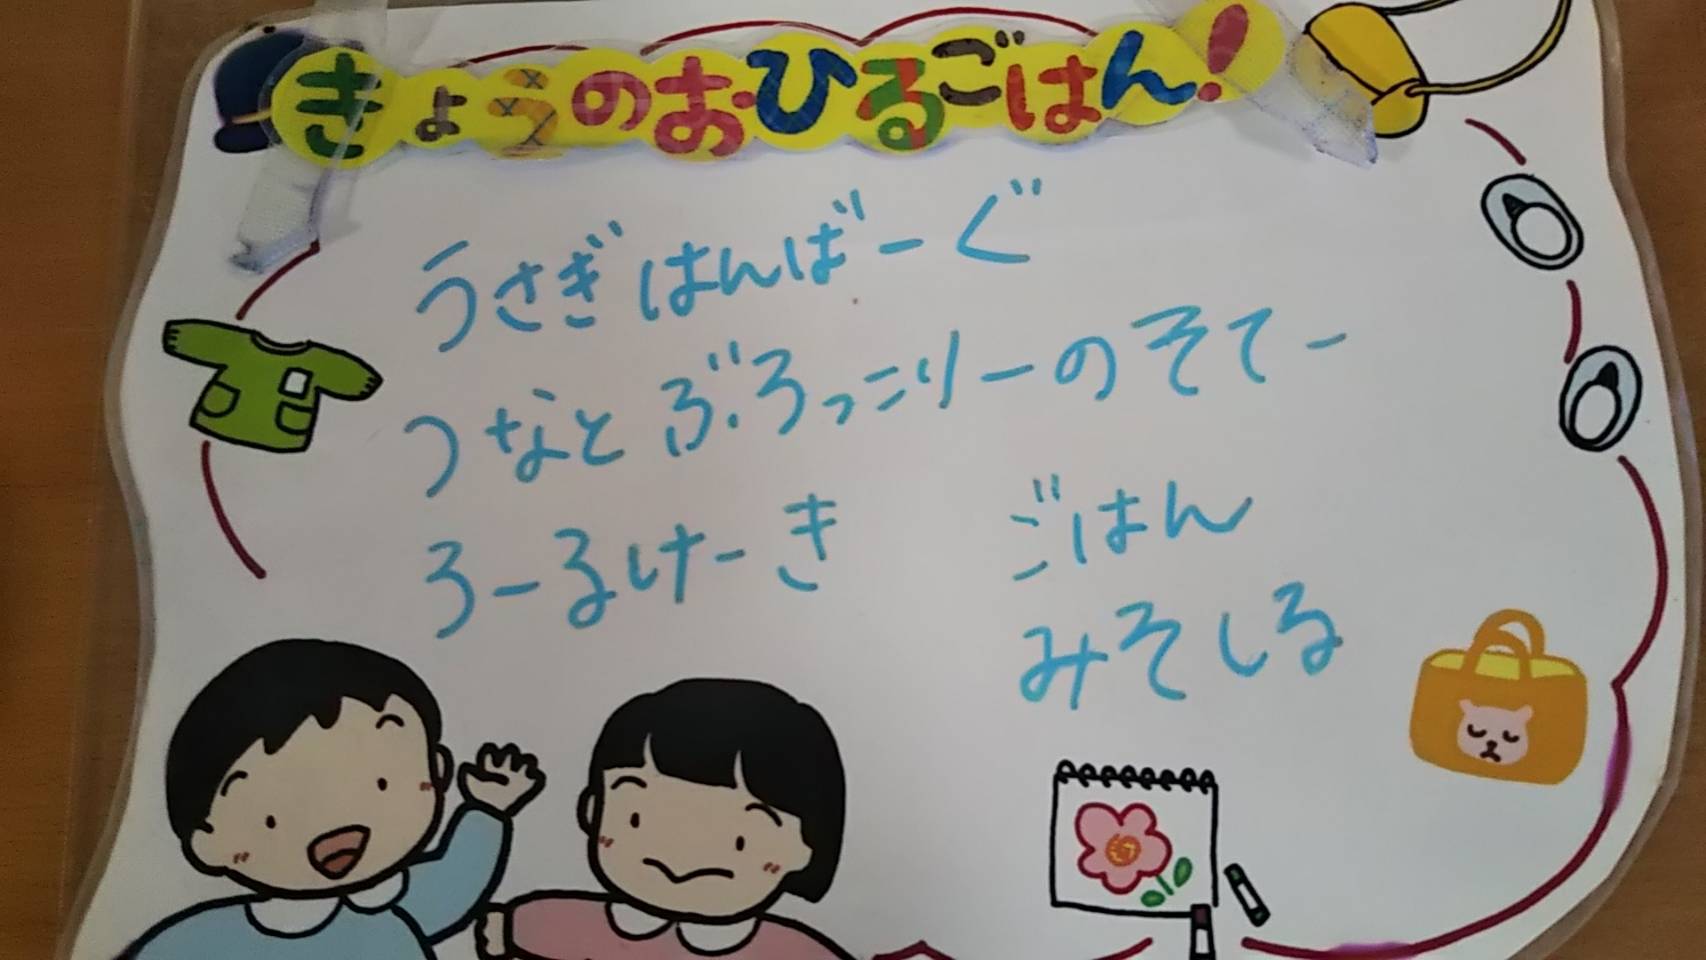 きょうのおひるごはん!
うさぎはんばーぐ
つなとぶろっこりーのそてー
ろーるけーき
ごはん
みそしる